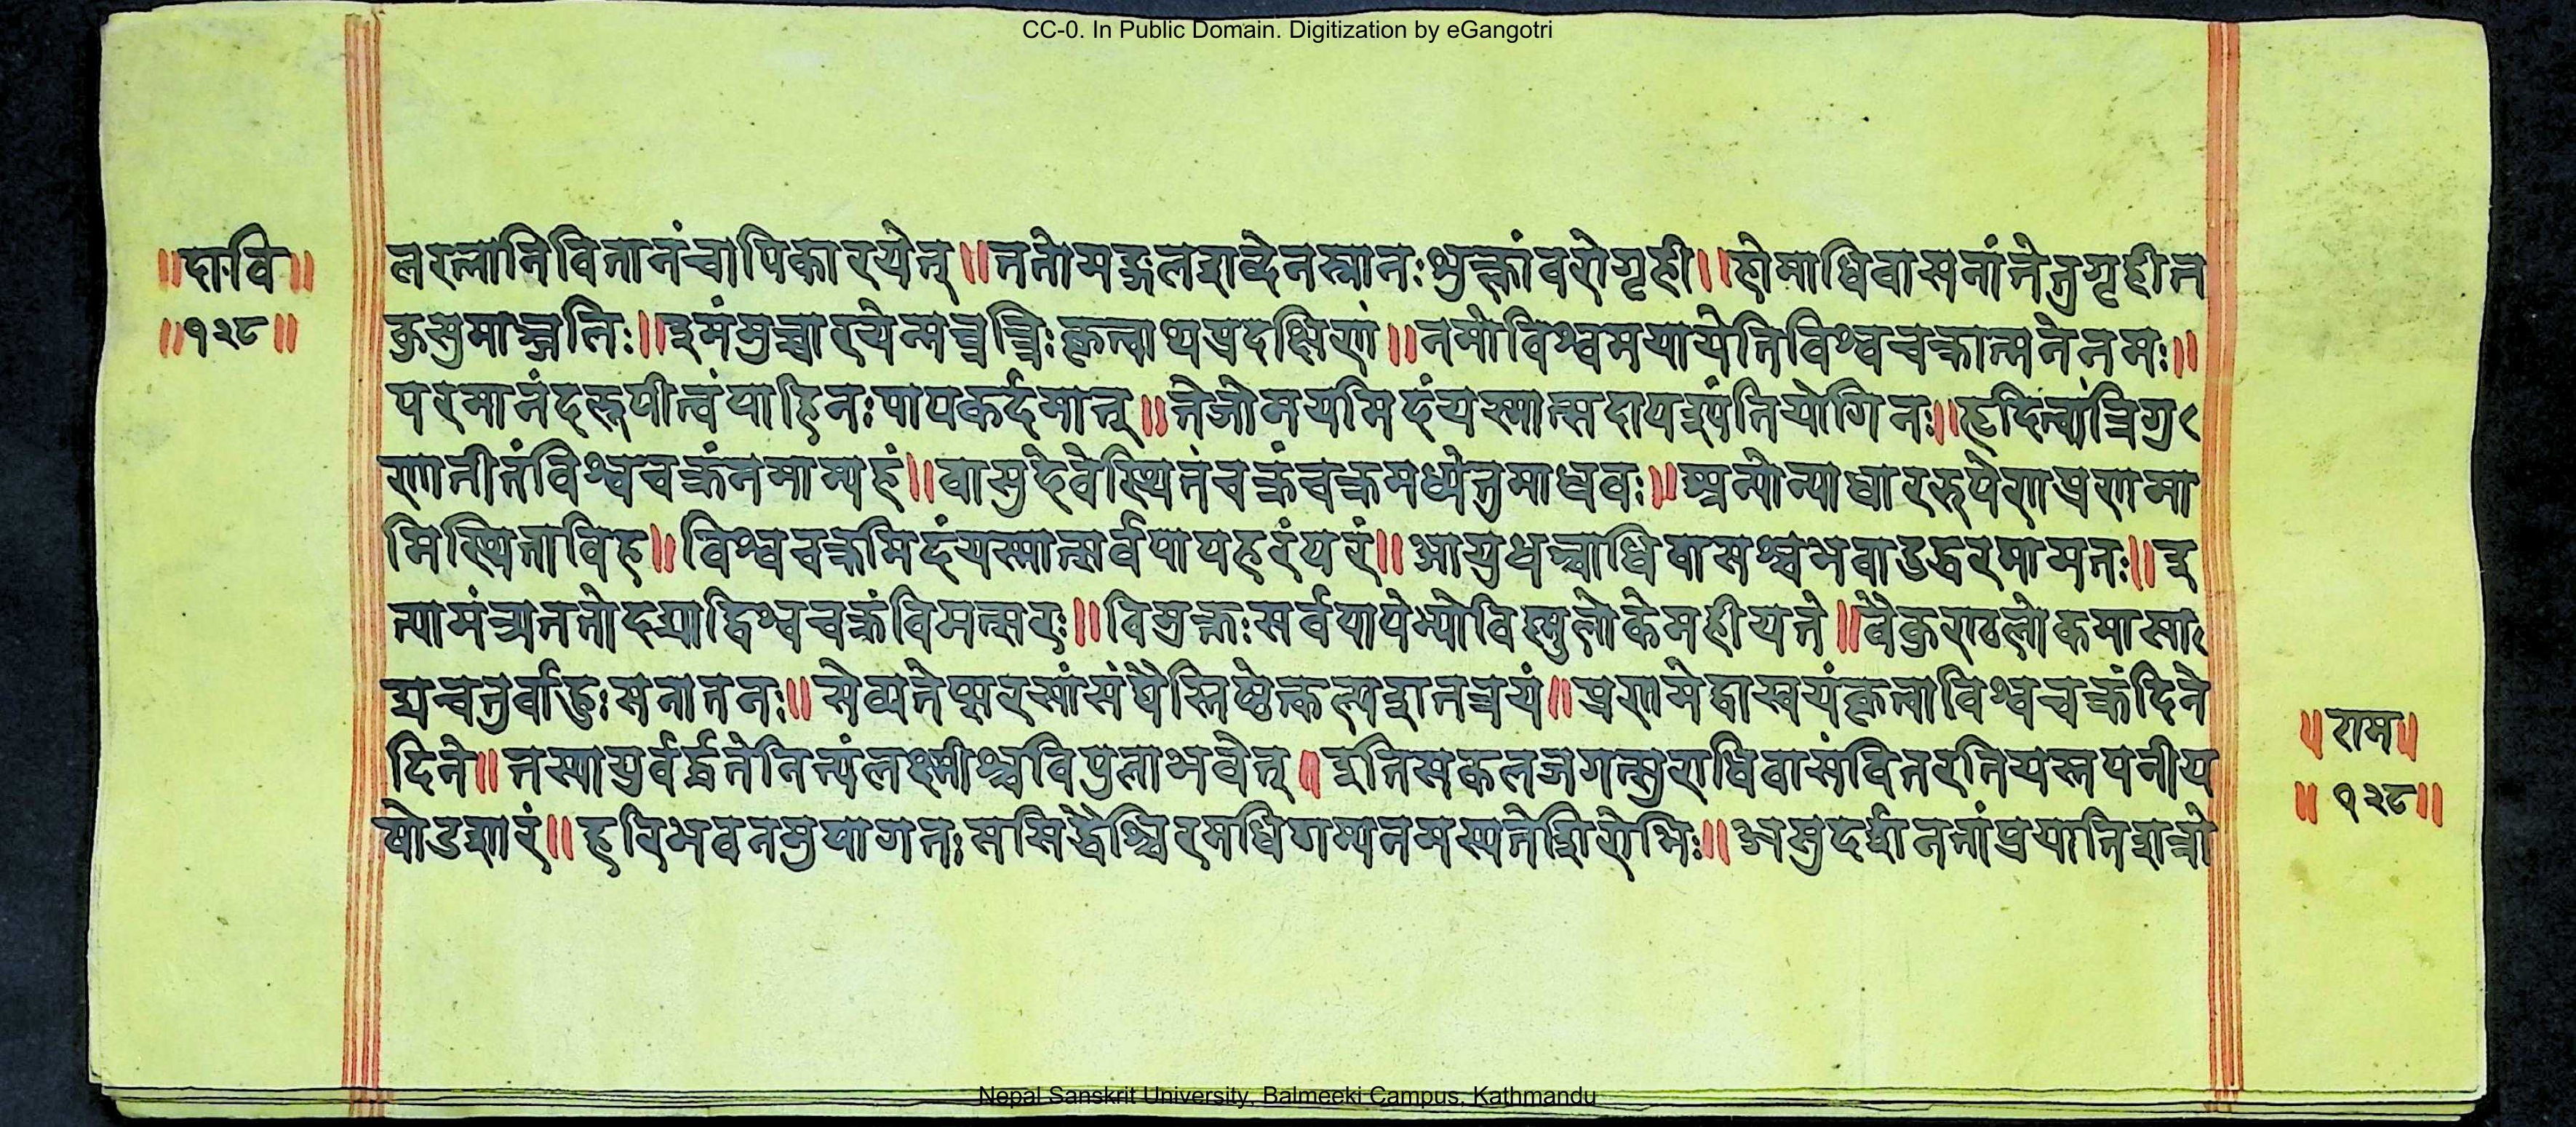 CC-0. In Public Domain. Digitization by eGangotri
॥दा॰वि॥
॥१२८॥
लरत्नानिवितानंचापिकारयेत्॥ततोमङ्गलशब्देनस्नातःशुक्लांवरोगृही॥होमाधिवासनांतेतुगृहीत
कुसुमाञ्जलिः॥इमंमुच्चारयेन्मन्त्रंत्रिःकृत्वाथप्रदक्षिणं॥नमोविश्वमयायेतिविश्वचक्रात्मनेनमः॥
परमानंदरूपीत्वंपाहिनःपापकर्दमात्॥तेजोमयमिदंयस्मात्सदापश्यंतियोगिनः॥हृदित्वांत्रिगु
णातीतंविश्वचक्रंनमाम्यहं॥वासुदेवेस्थितंचक्रंचक्रमध्येतुमाधवः॥अन्योन्याधाररुपेणप्रणमा
मिस्थिताविह॥विश्वचक्रमिदंयस्मात्सर्वपापहरंपरं॥आयुधञ्चाधिवासश्चभवादुद्धरमामतः॥इ
त्यामंत्र्यततोदद्याद्विश्वचक्रंविमत्सरः॥विमुक्तःसर्वपापेभ्योविष्णुलोकेमहीयते॥वैकुण्ठलोकमासा
द्यचतुर्वाहुःसनातनः॥सेव्यतेप्सरसांसंघैस्तिष्ठेत्कल्पशतत्रयं॥प्रणमेद्वास्वयंकृत्वाविश्वचक्रंदिने
दिने॥तस्यायुर्वर्द्धतेनित्यंलक्ष्मीश्चविपुलाभवेत्॥इतिसकलजगत्सुराधिवासंवितरतियस्तपनीय
षोडशारं॥हरिभवनमुपागतःससिद्धैश्चिरमधिगम्यनमस्यतेशिरोभिः॥असुदर्शनतांप्रयातिशत्रो
॥राम॥
॥१२८॥
Nepal Sanskrit University, Balmeeki Campus, Kathmandu